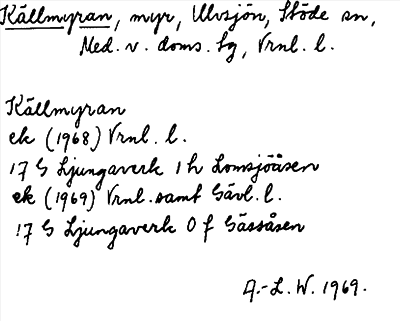 Källmyran, myr, Ulvsjön, Stöde sn,
Med. v. doms. tg, Vrnl. l.
Källmyran
ek (1968) Vrnl. l.
17 G Ljungaverk 1 h Lomsjöåsen
ek (1969) Vrnl. samt Gävl. l.
17 G Ljungaverk 0 f Gässåsen
A.-L. W. 1969.